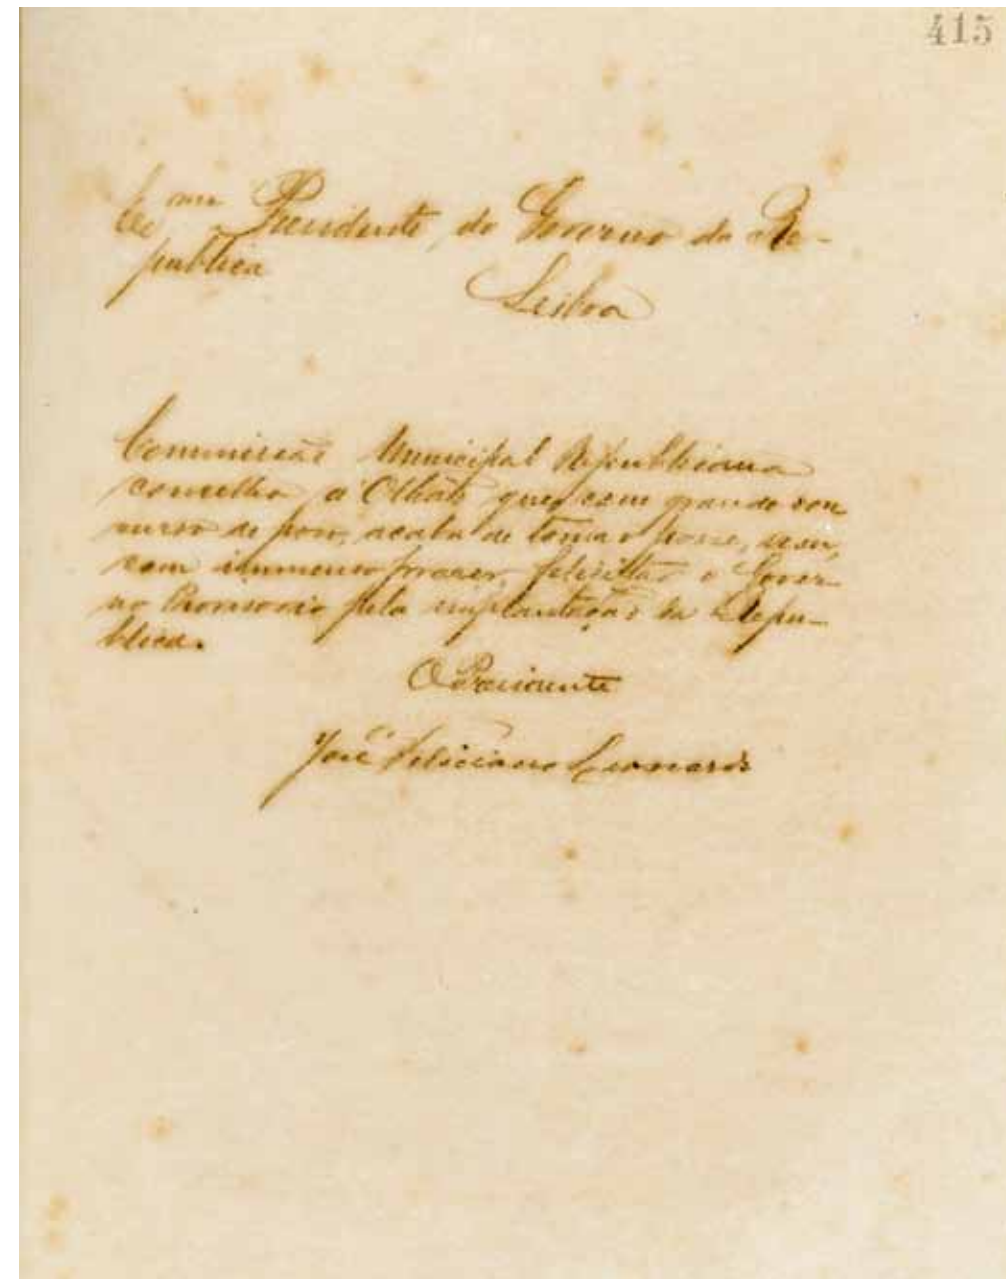 415
Ex.mo Presidente do Governo da Re-
publica
Lisboa
Commissão Municipal Republicana
concelho d'Olhão que, com grande con
curso de povo, acaba de tomar posse, vem,
com immenso prazer, felicitar o Gover-
no Provisorio pela implantação da Repu-
blica.
O Presidente
José Feliciano Leonardo